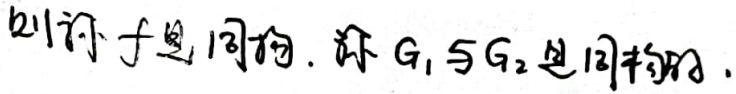 则称 f 是同构. 称 G₁ 与 G₂ 是同构的.